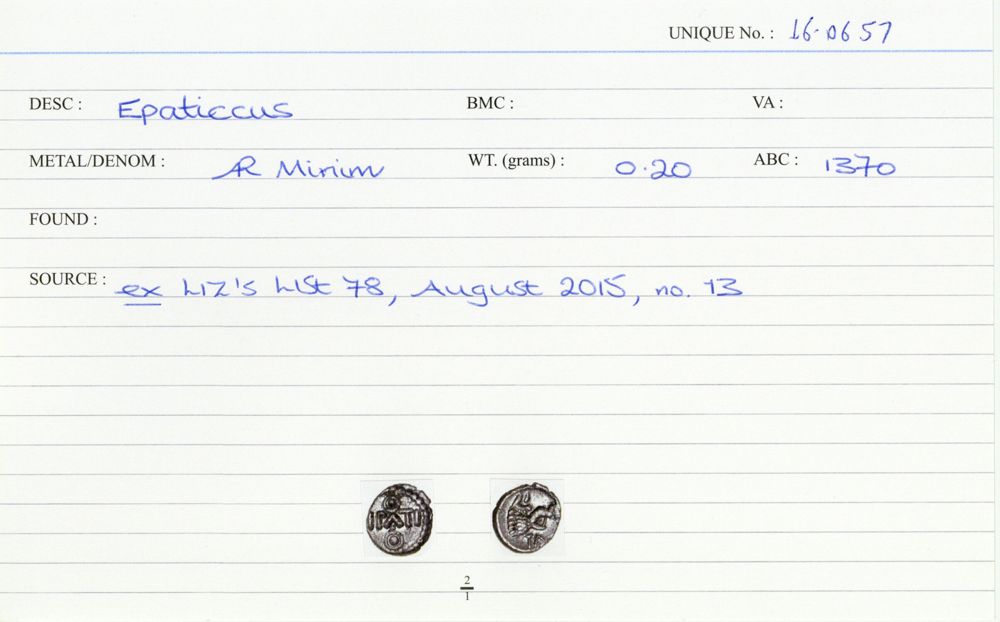 UNIQUE No. : 16-0657
DESC : Epaticcus BMC : VA :
METAL/DENOM : AR Minim WT. (grams) : 0.20 ABC : 1370
FOUND :
SOURCE : ex Liz's List 78, August 2015, no. 13
IPATI
TA
2
1